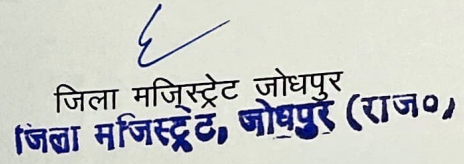 जिला मजिस्ट्रेट जोधपुर
जिला मजिस्ट्रेट, जोधपुर (राज०)